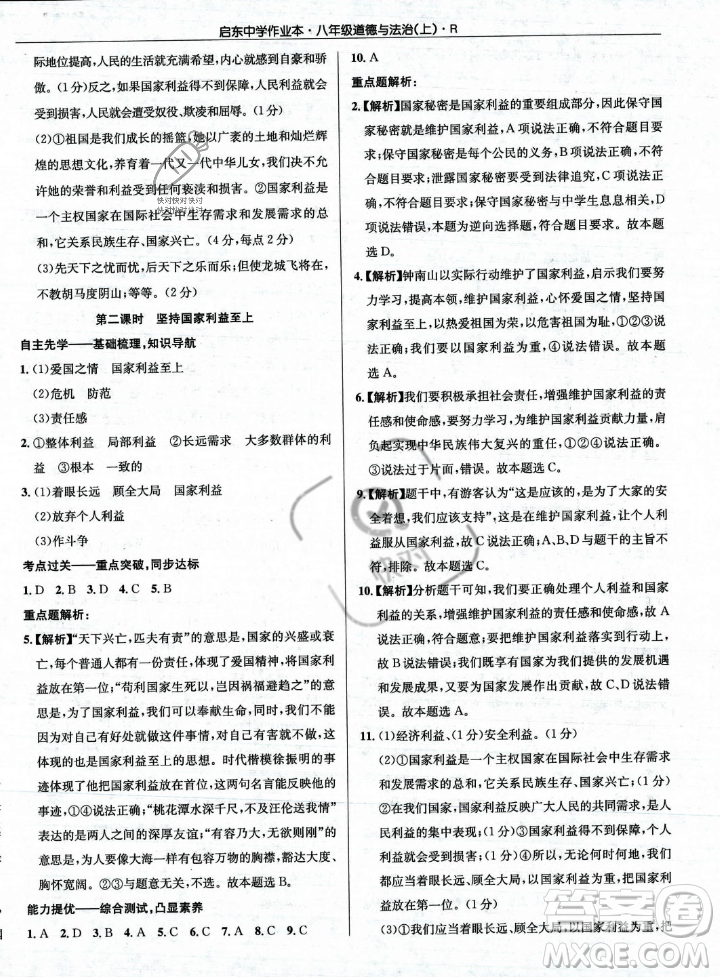 启东中学作业本·八年级道德与法治(上)·R
际地位提高,人民的生活充满希望,人民备感自信和骄
傲。(1分)国家利益得不到保障,人民的利益就会
受到损害,人民就会遭受奴役、欺凌和屈辱。(1分)
(2)①祖国是我们成长的摇篮,她以广袤的土地和灿烂辉
煌的思想文化,养育了一代又一代中华儿女,我们决不允
许她的荣誉和利益受到任何亵渎和侵害。②国家利益是
一个主权国家在国际社会中生存需求和发展需求的总
和,它关系民族生存、国家兴亡。(4分,每点2分)
(3)先天下之忧而忧,后天下之乐而乐;但使龙城飞将在,
不教胡马度阴山;等等。(2分)
第二课时 坚持国家利益至上
自主先学——基础梳理,知识导航
1.(1)爱国之情 国家利益至上
(2)危机 防范
(3)责任感
2.①整体利益 局部利益 ②长远需求 大多数群体的利
益 ③根本 一致的
3.(1)着眼长远 顾全大局 国家利益
(2)放弃个人利益
(3)作斗争
考点过关——重点突破,同步达标
1.D 2.B 3.D 4.C 5.B
重点题解析:
5.【解析】“天下兴亡,匹夫有责”的意思是,国家的兴盛或衰
亡,每个普通人都有一份责任,体现了爱国精神,将国家利
益放在第一位;“苟利国家生死以,岂因祸福避趋之”的意
思是,只要有利于国家,我们可以奉献生命,难道能因为自
己的利害得失就改变对待这件事情,对待人民的态度吗?
体现的也是国家利益放在第一位的意思;时代楷模徐振明的事
迹体现了将国家利益放在首位,这两句名言能反映他的
事迹,①④符合题意;“桃花潭水深千尺,不及汪伦送我情”
表达的是两人之间的深厚友谊;“海纳百川,有容乃大”的
意思是,要像大海一样有包容万物的胸襟,以此来表达心
胸怀宽阔。②③错误。故本题选B。
能力提优——综合测试,凸显素养
1.A 2.D 3.C 4.A 5.B 6.C 7.D 8.C 9.C
10.A
重点题解析:
2.【解析】国家秘密是国家利益的重要组成部分,因此保守国
家秘密就是维护国家利益,A项说法正确,不符合题
求;保守国家秘密是每个公民的义务,B项说法正确,不符
合题意;泄露国家秘密要受到法律追究,C项说法正确,
不符合题意;保守国家秘密与中学生息息相关,D
项说法错误,本题为逆向选择题,符合题意。故本题
选D。
4.【解析】钟南山以实际行动维护了国家利益,启示我们要
努力学习,增强维护国家利益的使命感,心怀爱国之情,
树立以热爱祖国为荣,以危害祖国为耻,①②说法
正确,符合题意;③过于绝对,④说法错误。故本题
选A。
6.【解析】我们要积极承担社会责任,增强维护国家利益的
责任感和使命感,为维护国家利益贡献力量,肩
负起实现中华民族伟大复兴的使命,①②④符合题
意;③说法过于片面,排除。故本题选C。
9.【解析】题干中,有游客认为“这是应该的,是为了大家的安
全着想,我们应该支持”,这是在维护国家利益,个人利
益服从国家利益,C正确;A、B、D与题干的主旨不
符,排除。故本题选C。
10.【解析】分析题干可知,我们要正确认识个人利益和国家
利益的关系,增强维护国家利益的责任感和使命感,
符合题意;要把维护国家利益落实到行动上,
故B说法错误;我们既享有国家的发展机遇
和发展成果,又要为国家发展作出贡献,故C、D
说法错误。故本题选A。
11.(1)经济利益、(1分)安全利益。(1分)
(2)①国家利益是一个主权国家在国际社会中生存需求
和发展需求的总和,它关系民族生存、国家兴亡。(1分)
②在我国,国家利益反映广大人民的共同需求,是人
民利益的集中体现;(1分)③无论何时何地,我们
都应当着眼长远、顾全大局,以国家利益为重,把国家利益
放在第一位。(1分)
(3)①我们应当着眼长远、顾全大局,以国家利益为重,把